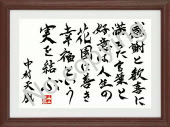 感謝と歓喜に
満ちた言葉と
好意は人生の
花園に善き
幸福という
実を結ぶ
中村天風